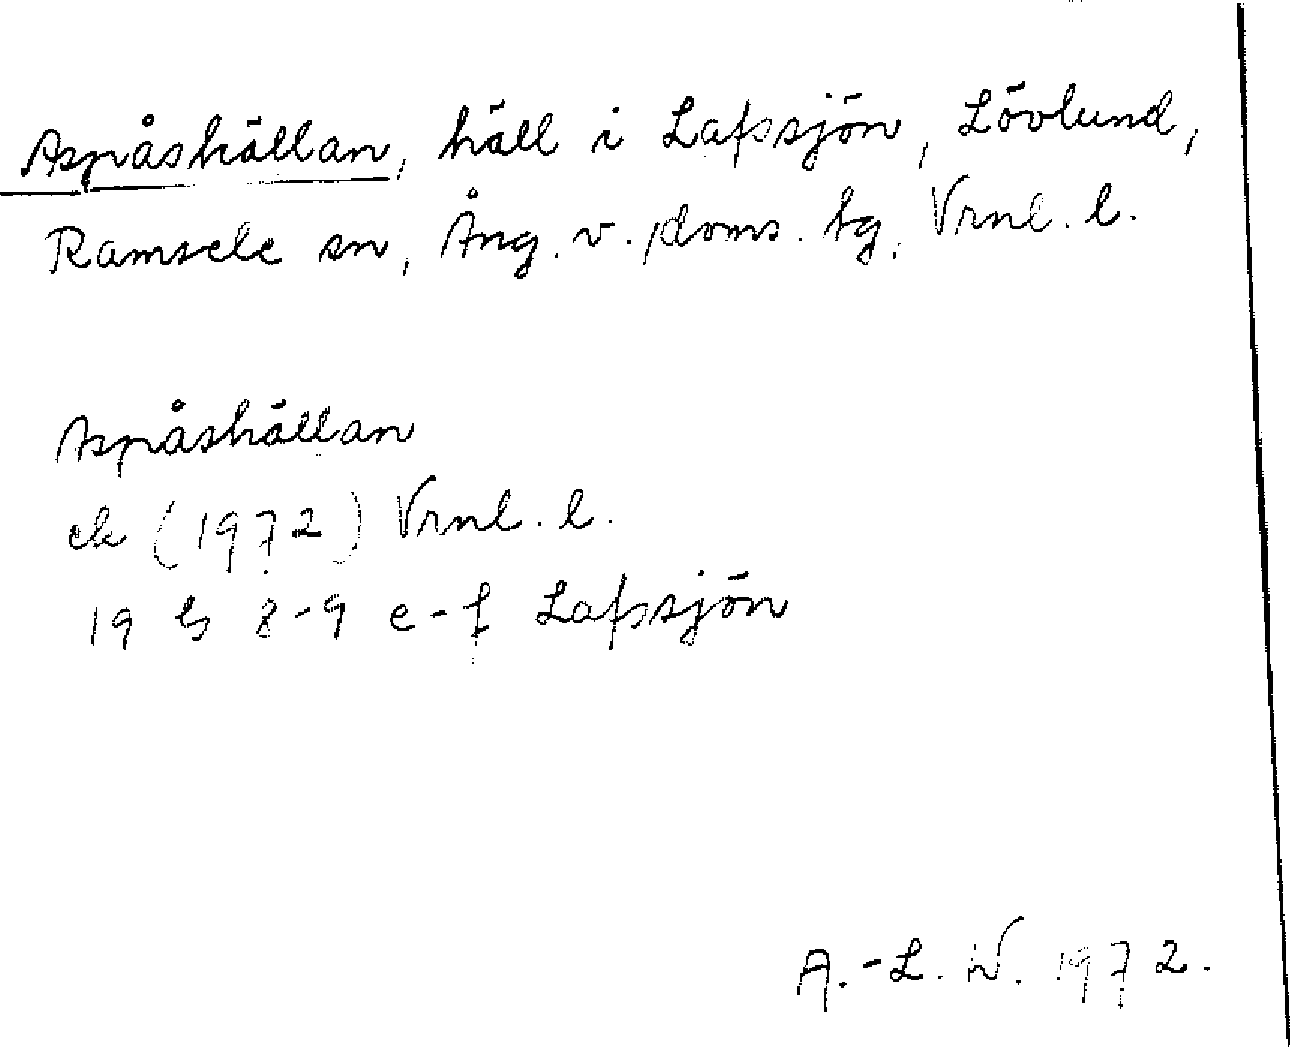 Aspåshällan, häll i Lafssjön, Lövlund,
Ramsele sn, Ång. v. doms. tg. Vrnl. l.
Aspåshällan
ek (1972) Vrnl. l.
19 G 8-9 e-f Lafssjön
A.-L. W. 1972.